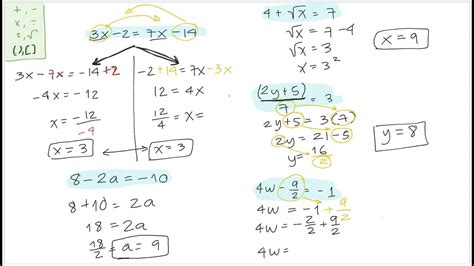 +, -
×, ÷
2, √
(), []
3x - 2 = 7x - 14
3x - 7x = -14 + 2
-4x = -12
x = -12/-4
x = 3
-2 + 14 = 7x - 3x
12 = 4x
12/4 = x
x = 3
8 - 2a = -10
8 + 10 = 2a
18 = 2a
18/2 = a = 9
4 + √x = 7
√x = 7 - 4
√x = 3
x = 3²
x = 9
(2y + 5)/7 = 3
2y + 5 = 3(7)
2y = 21 - 5
y = 16/2
y = 8
4w - 9/2 = -1
4w = -1 + 9/2
4w = -2/2 + 9/2
4w =